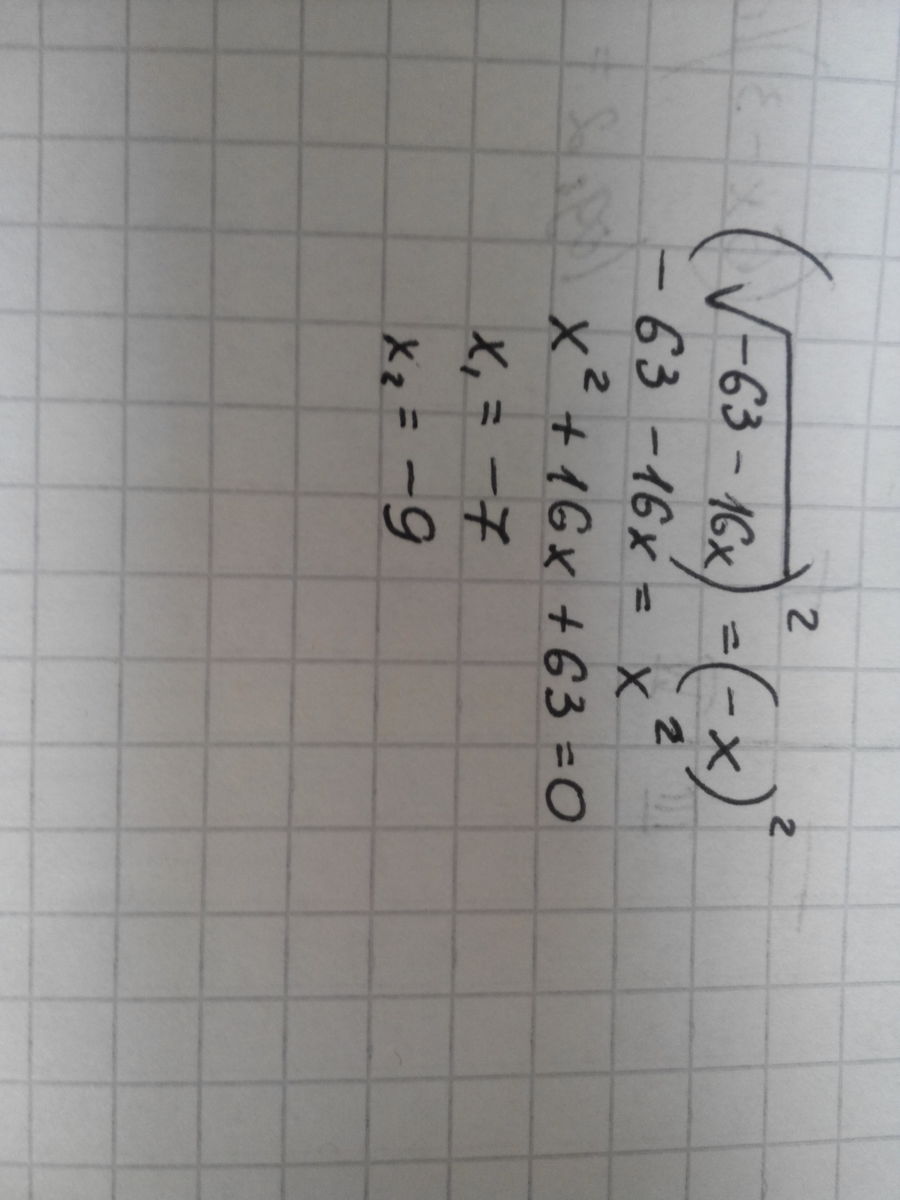 (√-63 - 16x)² = (-x)²
- 63 - 16x = x²
x² + 16x + 63 = 0
x₁ = -7
x₂ = -9